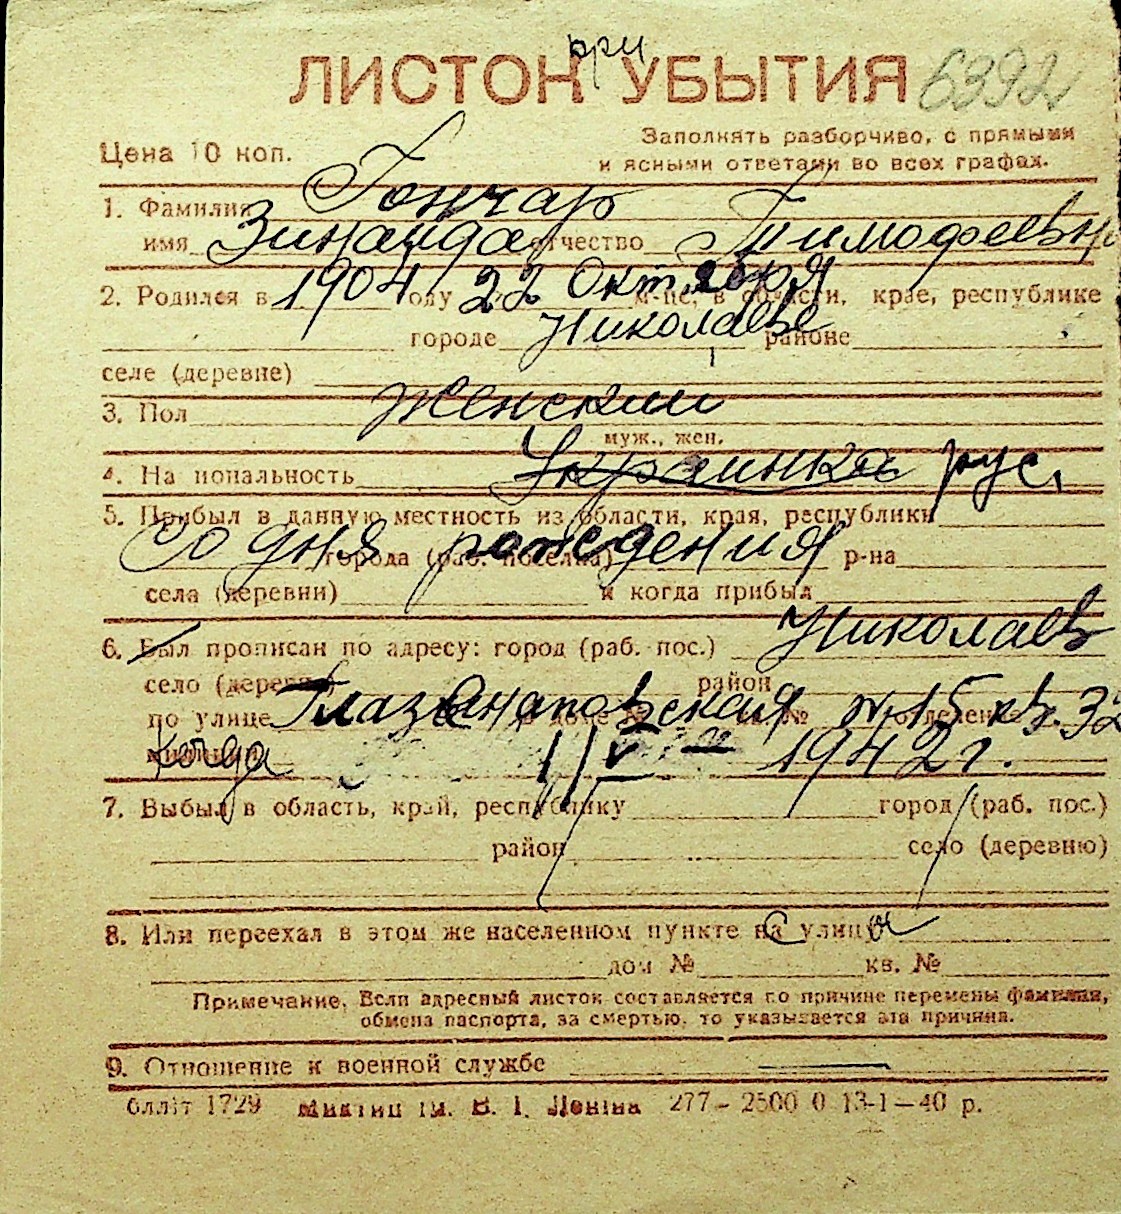 ЛИСТОК УБЫТИЯ 6392
при
Заполнять разборчиво, с прямыми
Цена 10 коп. и ясными ответами во всех графах.
1. Фамилия Гончар
имя Зинаида отчество Тимофеевн
2. Родился в 1904 году 22 Октября м-це, в области, крае, республике
городе Николаеве районе
селе (деревне)
3. Пол Женский
муж., жен.
4. На иональность Украинка рус.
5. Прибыл в данную местность из области, края, республики
со дня рождения города (раб. поселка) р-на
села (деревни) и когда прибыл
6. Был прописан по адресу: город (раб. пос.) Николаев
село (деревня) район
по улице № 15 кв. 32
когда 1942 г.
7. Выбыл в область, край, республику город (раб. пос.)
район село (деревню)
8. Или переехал в этом же населенном пункте на улицу
дом № кв. №
Примечание. Если адресный листок составляется по причине перемены фамилии,
обмена паспорта, за смертью, то указывается эта причина.
9. Отношение к военной службе
блліт 1729 ім. В. І. Леніна 277 – 2500 0 13-1 — 40 р.